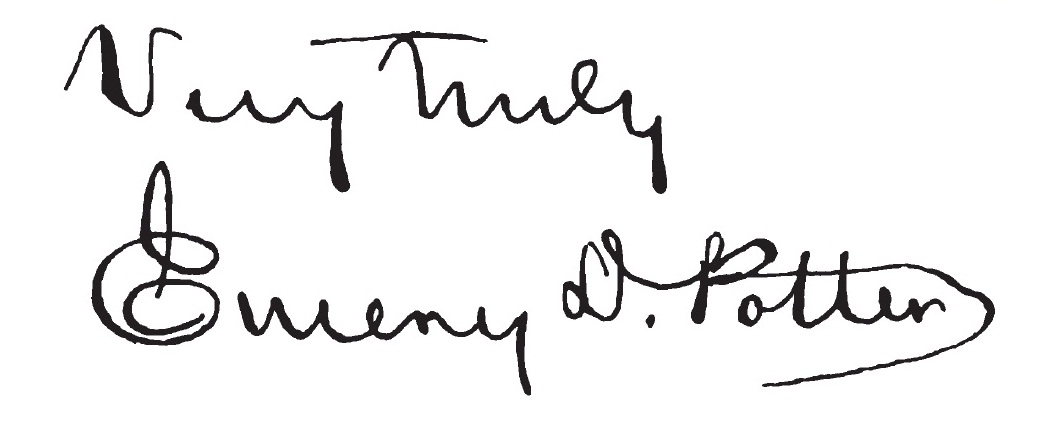 Very Truly
Emery D. Potter